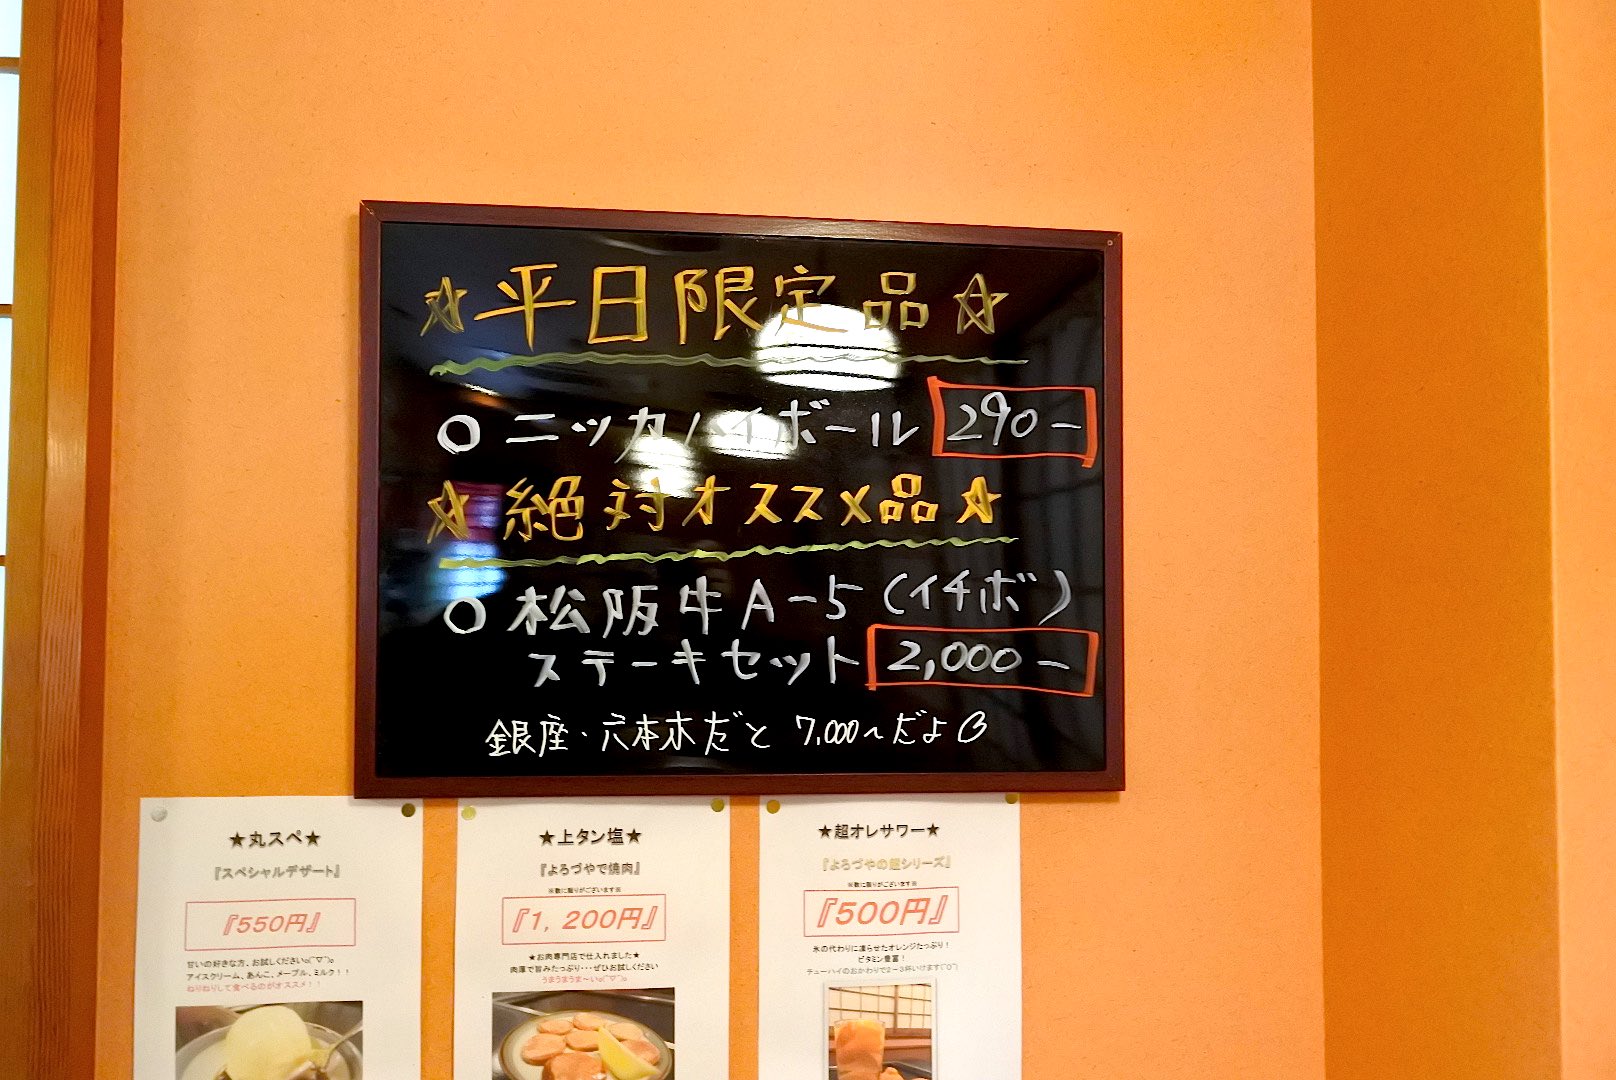 ☆平日限定品☆
○ ニッカハイボール 290-
☆絶対オススメ品☆
○ 松阪牛A-5(イチボ)
ステーキセット 2,000-
銀座・六本木だと 7,000~だよ♡
★丸スペ★
『スペシャルデザート』
『550円』
甘いの好きな方、お試しくださいo(^▽^)o
アイスクリーム、あんこ、メープル、ミルク!!
ねりねりして食べるのがオススメ!!
★上タン塩★
『よろづやで焼肉』
※数に限りがございます※
『1,200円』
★お肉専門店で仕入れました★
肉厚で旨みたっぷり・・・ぜひお試しください
うまうまうま~いo(^▽^)o
★超オレサワー★
『よろづやの超シリーズ』
※数に限りがございます※
『500円』
氷の代わりに凍らせたオレンジたっぷり!
ビタミン豊富!
チューハイのおかわりで2~3杯いけます(^O^)